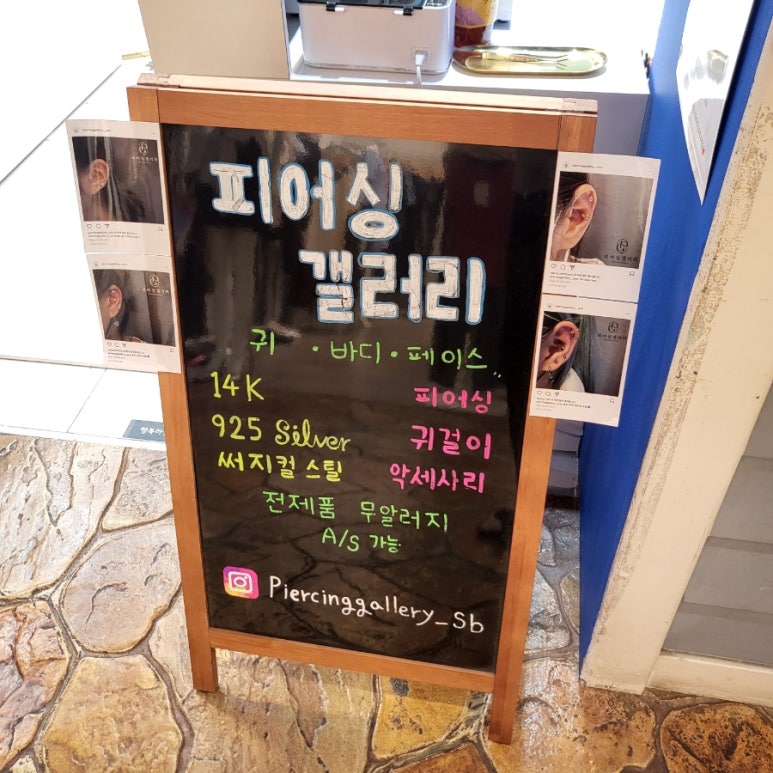 피어싱
갤러리
귀 · 바디 · 페이스
14K 피어싱
925 Silver 귀걸이
써지컬 스틸 악세사리
전제품 무알러지
A/S 가능
Piercinggallery_Sb